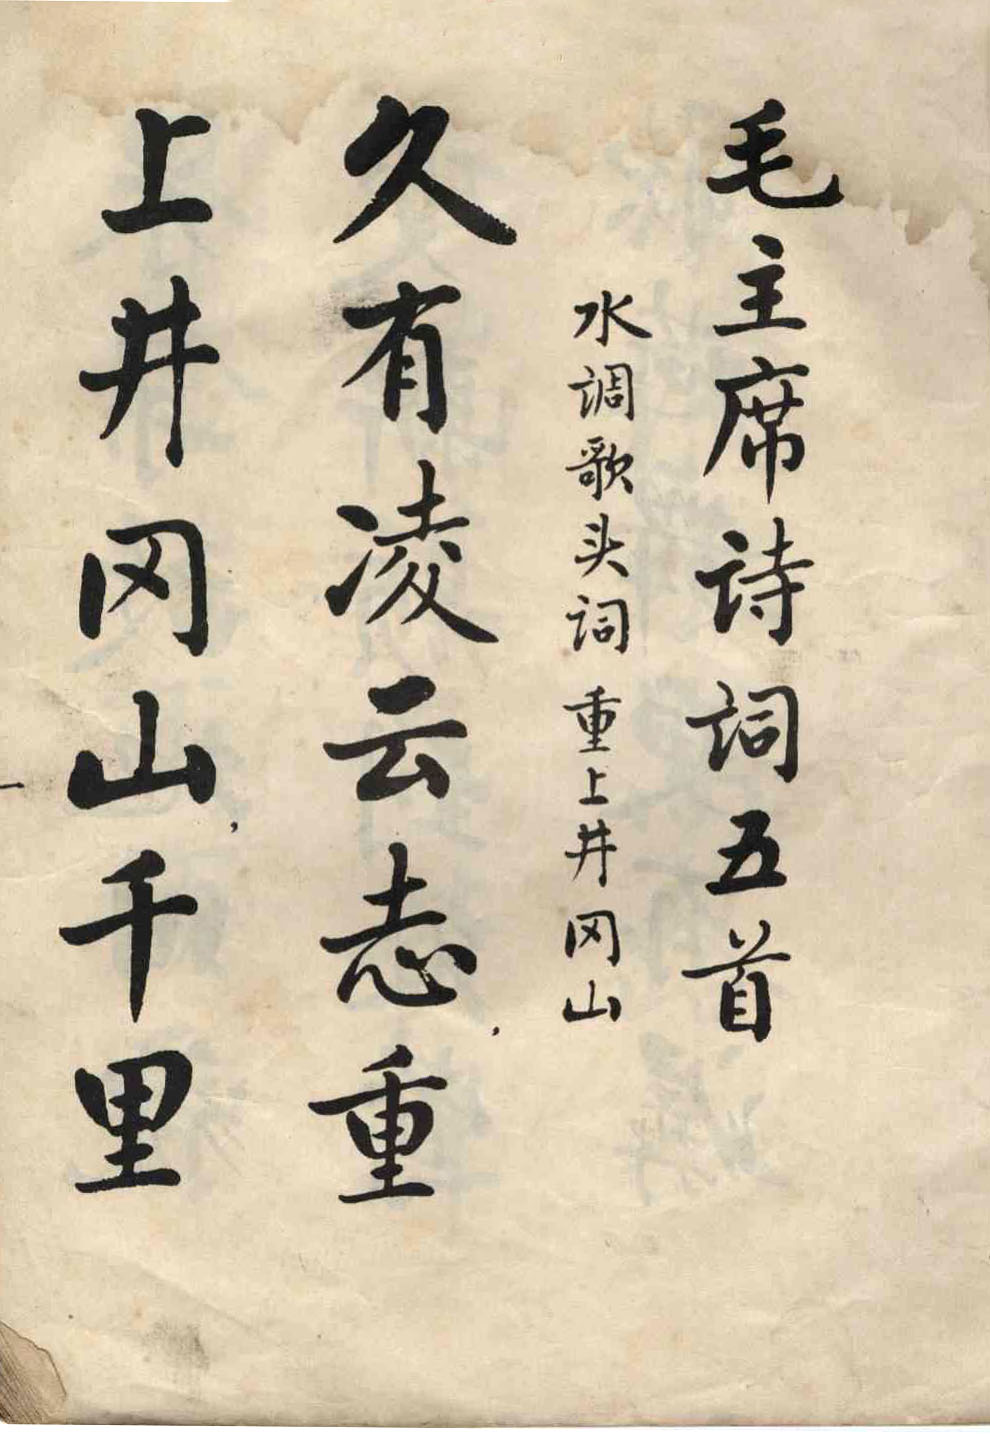 毛主席诗词五首
水调歌头词 重上井冈山
久有凌云志，重
上井冈山，千里